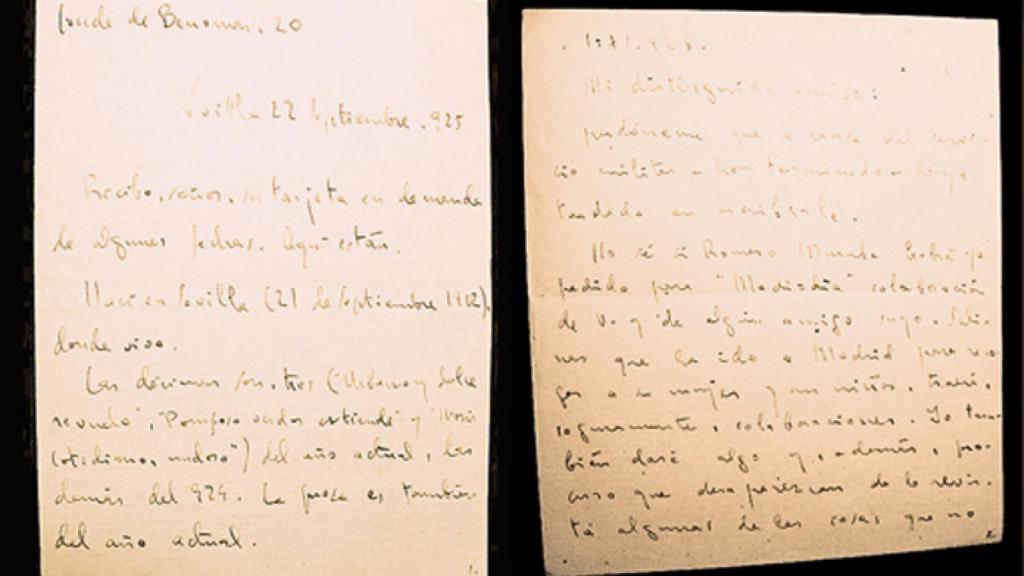 Conde de Benomar, 20
Sevilla 22 Septiembre. 925
Recibo, señor, su tarjeta en demanda
de algunas fechas. Aquí están.
Nací en Sevilla (21 de septiembre 1902),
donde vivo.
Las décimas son tres ("Urbano y dulce
revuelo", "Pomposo verdor extiende" y
cotidiano, undoso") del año actual, las
demás del 924. La prosa es también
del año actual.
Mi distinguido amigo:
perdóneme que a causa del servi-
cio militar - hoy terminado - haya
tardado en escribirle.
No sé si Romero Murube habrá ya
pedido para "Mediodía" colaboración
de V. y de algún amigo suyo. Sali-
nas que ha ido a Madrid para
a su mujer y sus niños, traerá,
seguramente, colaboraciones. Yo tam-
bién daré algo y, además, pro-
curo que desaparezcan de la revis-
ta algunas de las cosas que no